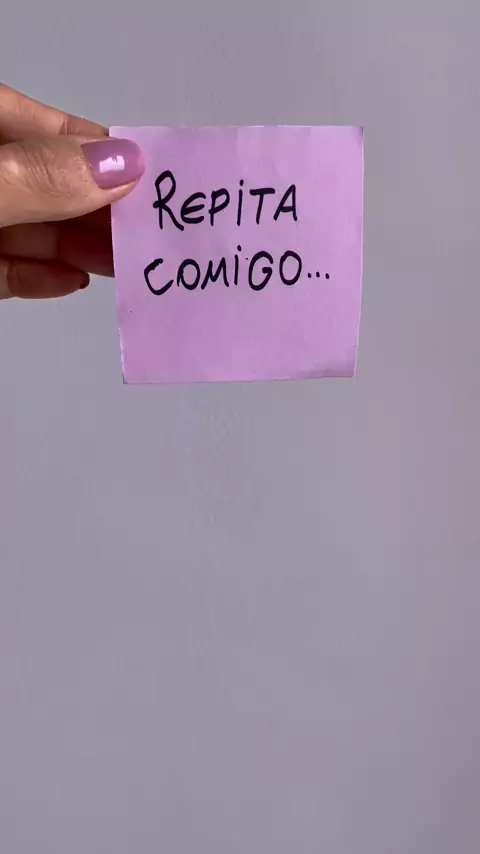 REPITA
COMIGO...